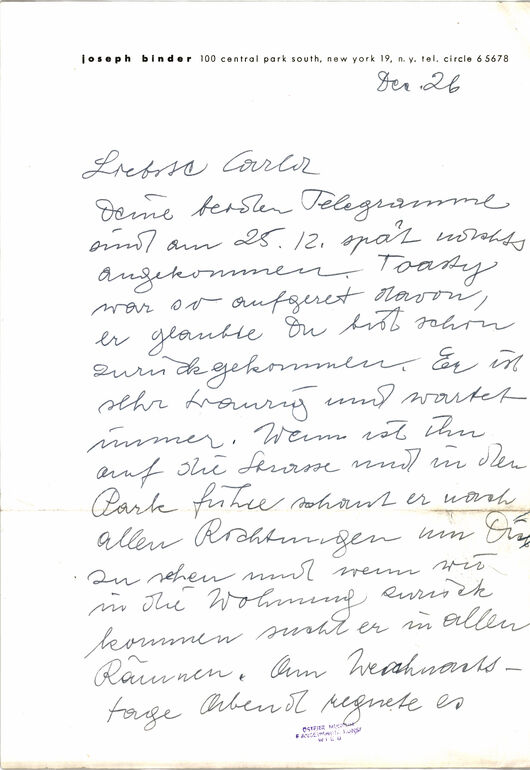 joseph binder 100 central park south, new york 19, n. y. tel. circle 6 5678
Dec. 26
Liebste Carla
Deine beiden Telegramme
sind am 25. 12. spät nachts
angekommen. Toasty
war so aufgeret davon,
er glaubte Du bist schon
zurückgekommen. Er ist
sehr traurig und wartet
immer. Wenn ich ihn
auf die Strasse und in den
Park führe schaut er nach
allen Richtungen um Dich
zu sehen und wenn wir
in die Wohnung zurück
kommen sucht er in allen
Räumen. Am Weihnachts-
tage Abend regnete es
WIEN